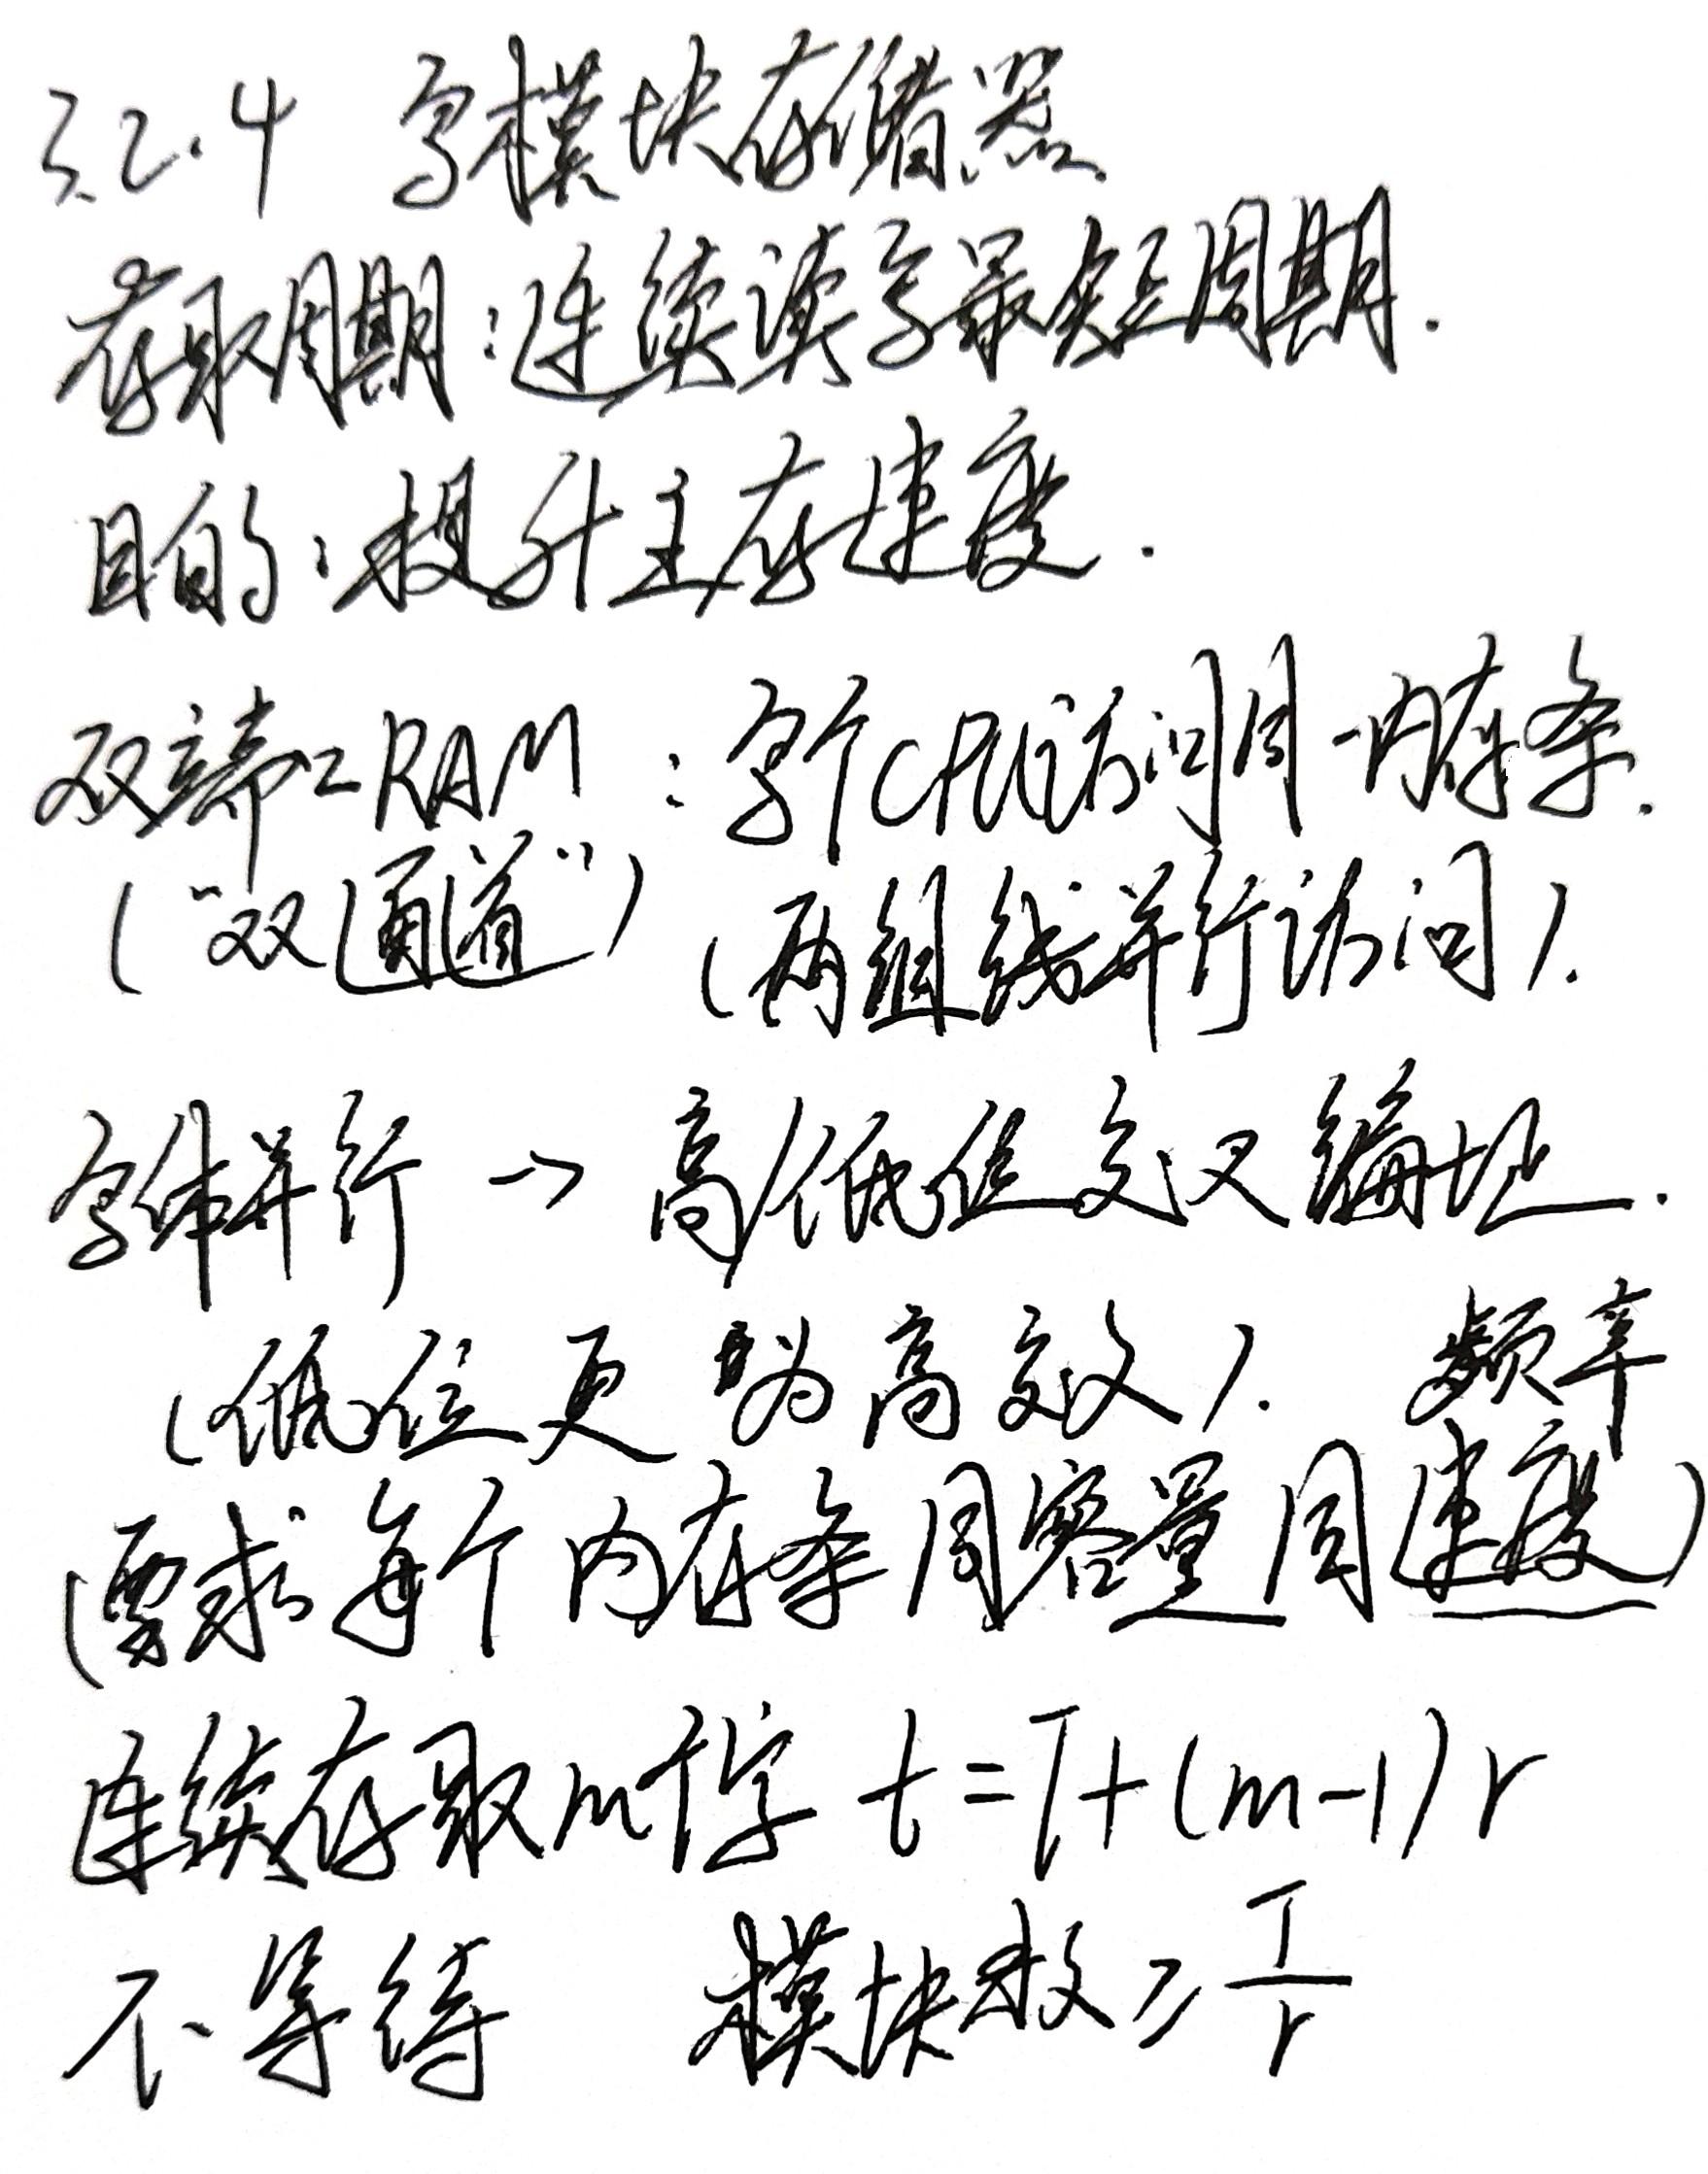 3.2.4 多模块存储器
存取周期：连续读写最短周期.
目的：提升主存速度.
双端口RAM：多个CPU访问同一内存条.
（“双通道”）（两组线并行访问）.
多体并行 → 高/低位交叉编址.
（低位更为高效）. 频率
（要求每个内存条同容量同速度）
连续存取m个字 t=T+(m-1)r
不等待 模块数≥T/r